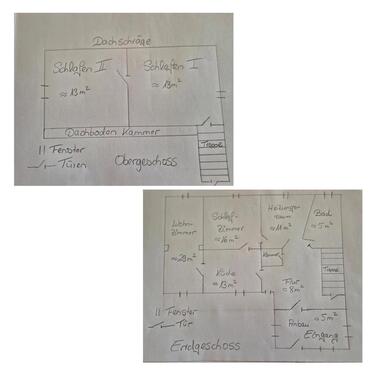 Dachschräge
Schlafen II
≈ 13m²
Schlafen I
≈ 13m²
Dachboden Kammer
Treppe
|| Fenster
Türen
Obergeschoss
Wohn-
zimmer
≈ 29m²
Schlaf-
Zimmer
≈ 16m²
Heizungs-
raum
≈ 11m²
Bad
≈ 5m²
Kammer
Küche
≈ 13m²
Flur
≈ 8m²
Treppe
≈ 5m²
Anbau
Eingang
|| Fenster
Tür
Erdgeschoss